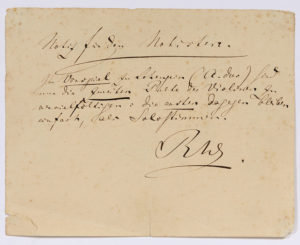 Notiz für den Notisten.
Im Vorspiel zu Lohengrin (A-dur) sind
nur die zweiten Pulte der Violinen zu
vervielfältigen: die ersten dagegen bleiben
einfach, als Solostimmen.
RW.